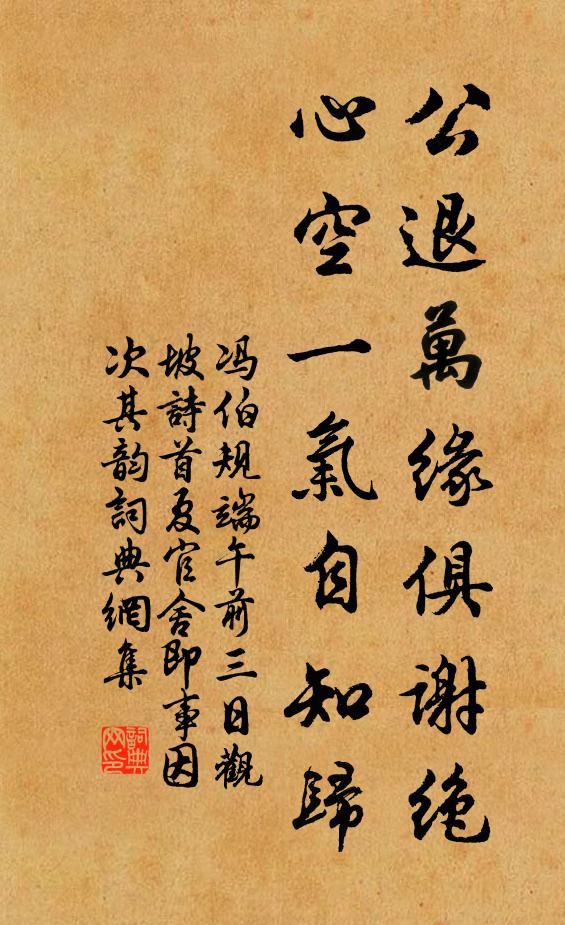 公退萬緣俱謝絶
心空一氣自知歸
冯伯規端午前三日觀
坡詩首夏官舍即事因
次其韵詞典網集
詞典网印